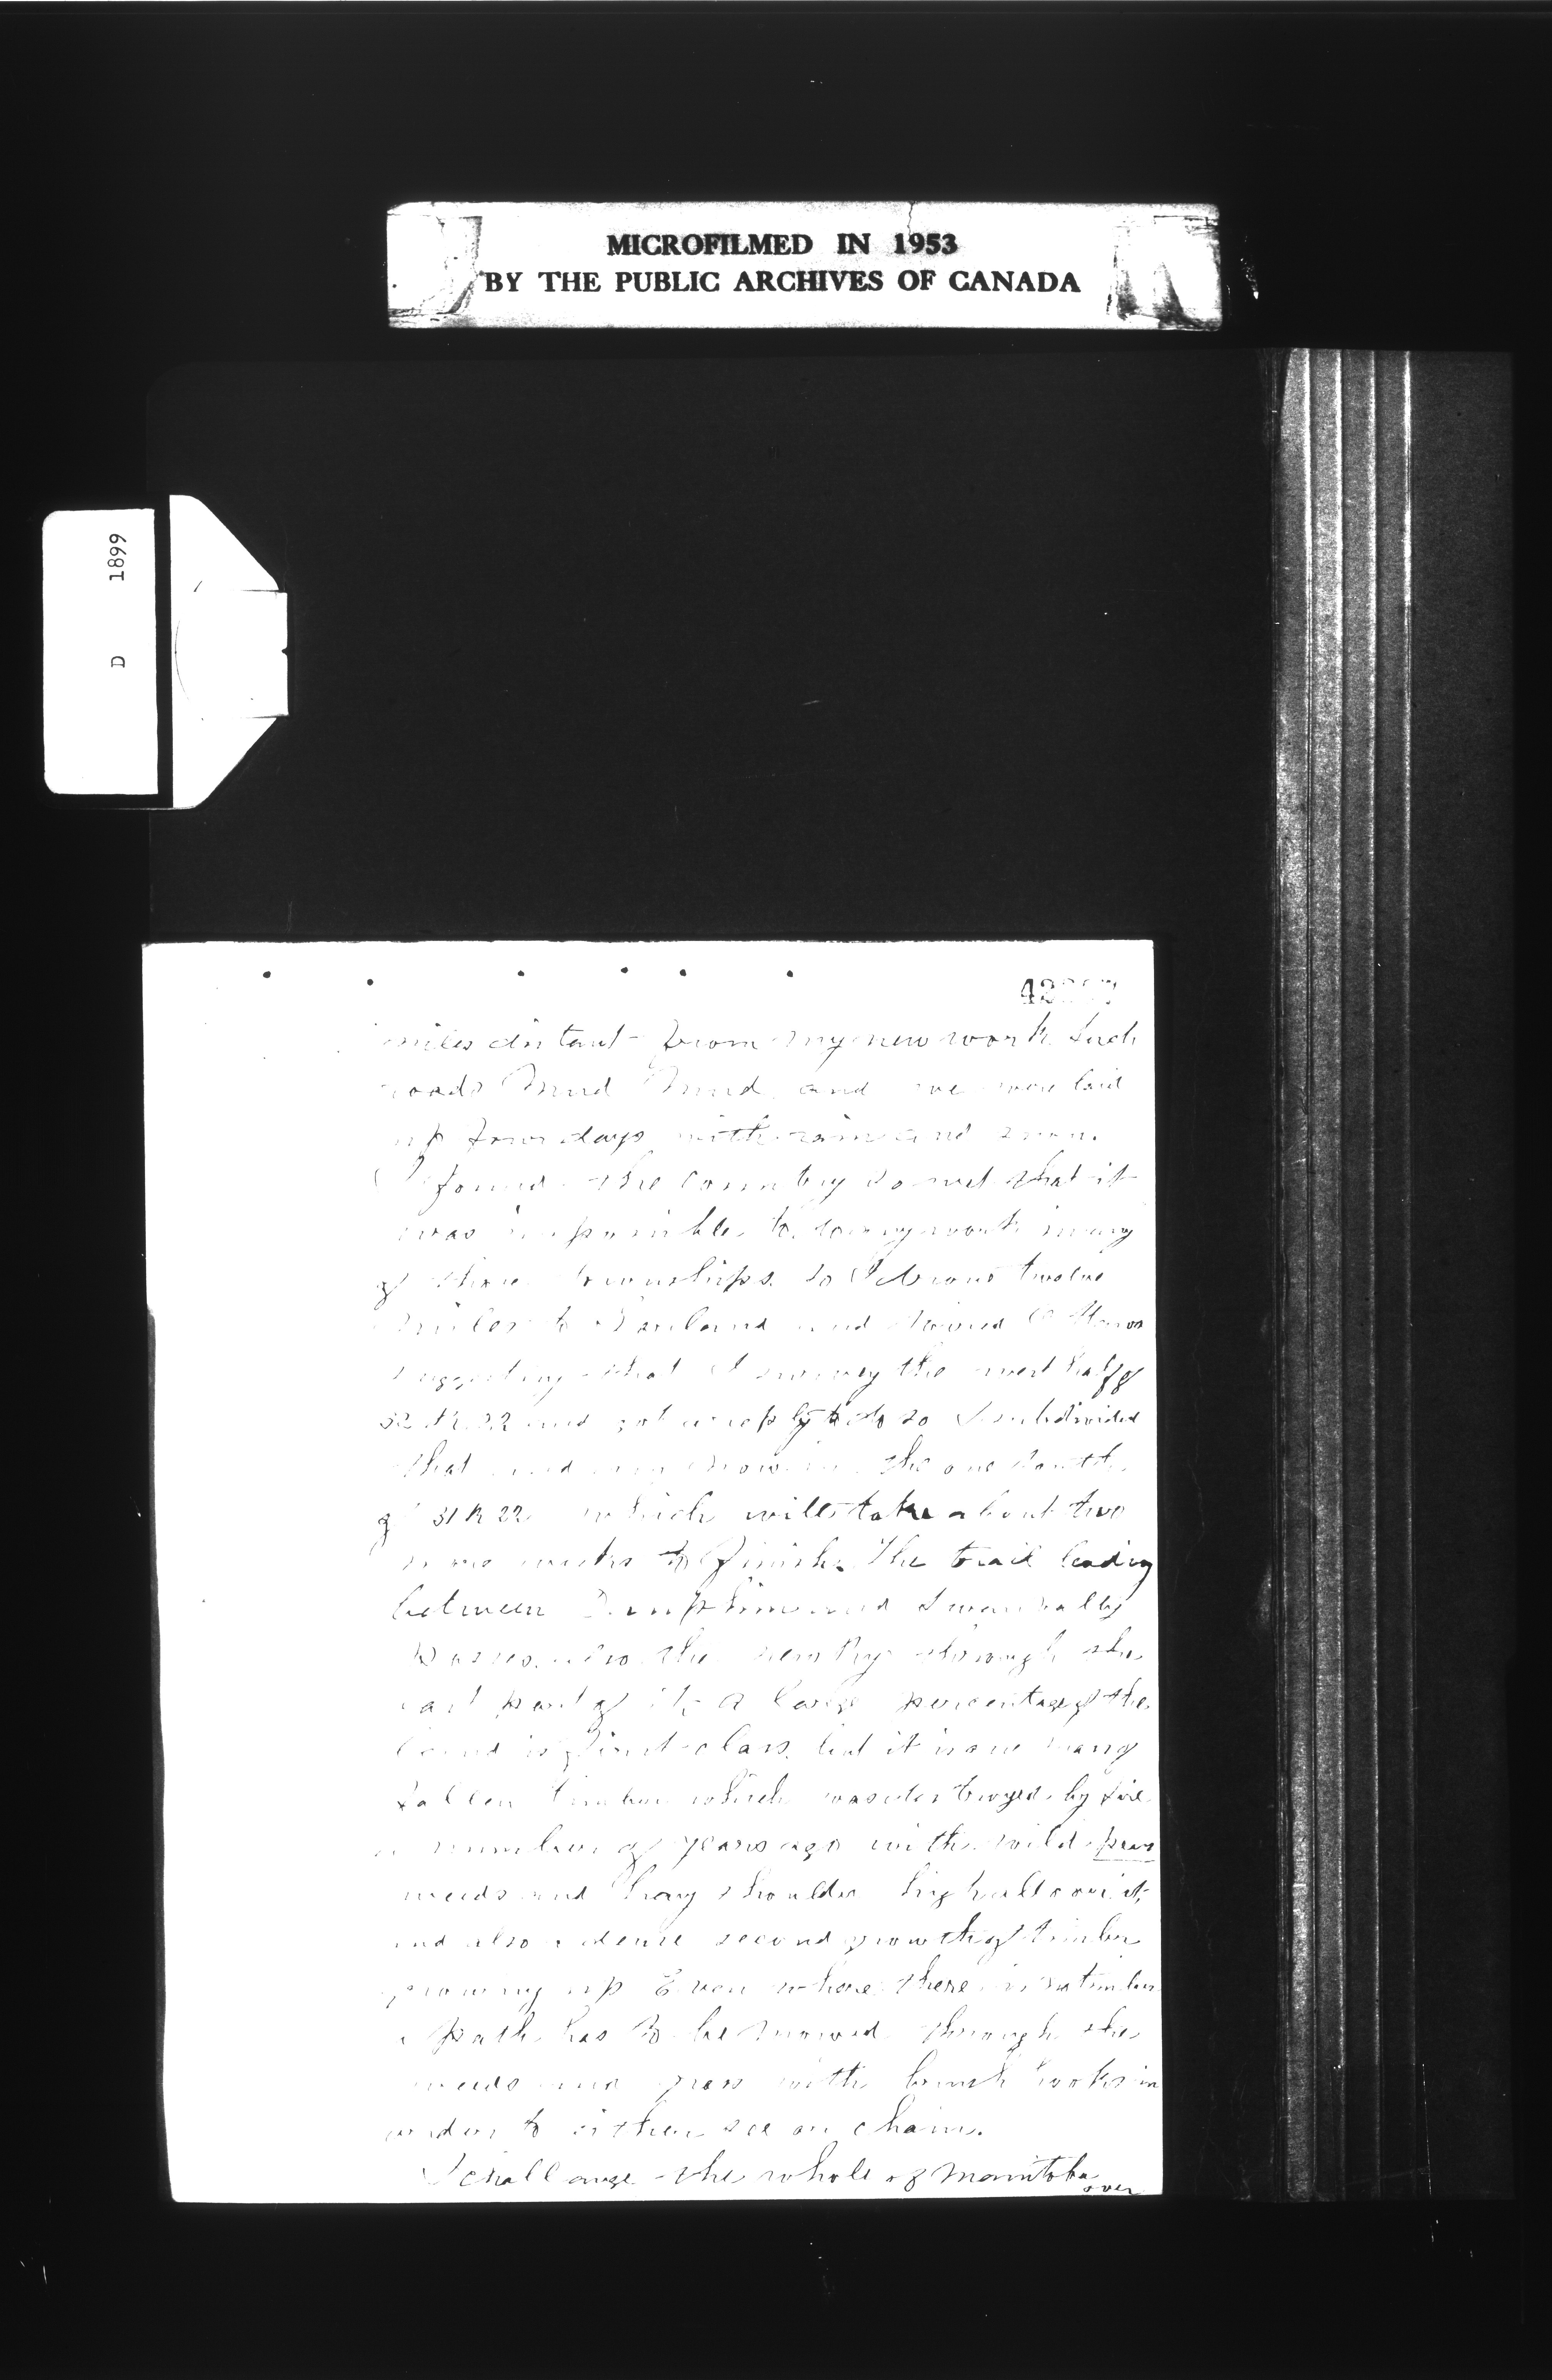 MICROFILMED IN 1953
BY THE PUBLIC ARCHIVES OF CANADA
D 1899
miles distant from my new work Such
roads Mud Mud and we were laid
up four days with rain and snow.
I found the country so wet that it
was impossible to survey north in any
of those townships. So I drove twelve
miles to and wired Ottawa
suggesting that I survey the west half of
32 R. 22 and got a reply to do so I subdivided
that and am now in the one South
of 31 R 22 which will take about two
more weeks to finish. The trail leading
between Dauphin and Swan Vally
the new Ry through the
east part of it, a large percentage of the
land is first class. but it is so many
fallen timber which was destroyed by fire
a number of years ago with wild peas
weeds and hay shoulder high all over it,
and also a dense second growth of timber
growing up Even where there is no timber
a path has to be mowed through the
weeds and grass with brush hooks in
order to either see or chain.
I challange the whole of Manitoba
over